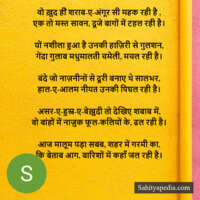 वो ख़ुद ही शराब-ए-अंगूर सी महक रही है ,
एक तो मस्त सावन, दूजे बागों में टहल रही है।
यों नशीला हुआ है उनकी हाज़िरी से गुलशन,
गेंदा गुलाब मधुमालती चमेली, मचल रही है।
बंदे जो नाज़नीनों से दूरी बनाए थे सालभर,
हाल-ए-आलम नीयत उनकी पिघल रही है।
असर-ए-हुस्न-ए-बेख़ुदी तो देखिए शबाब में,
वो बांहों में नाज़ुक फूल-कलियों के, ढल रही है।
आज मालूम पड़ा सबब, शहर में गरमी का,
कि बेताब आग, बारिशों में कहाँ जल रही है।
S
Sahityapedia.com